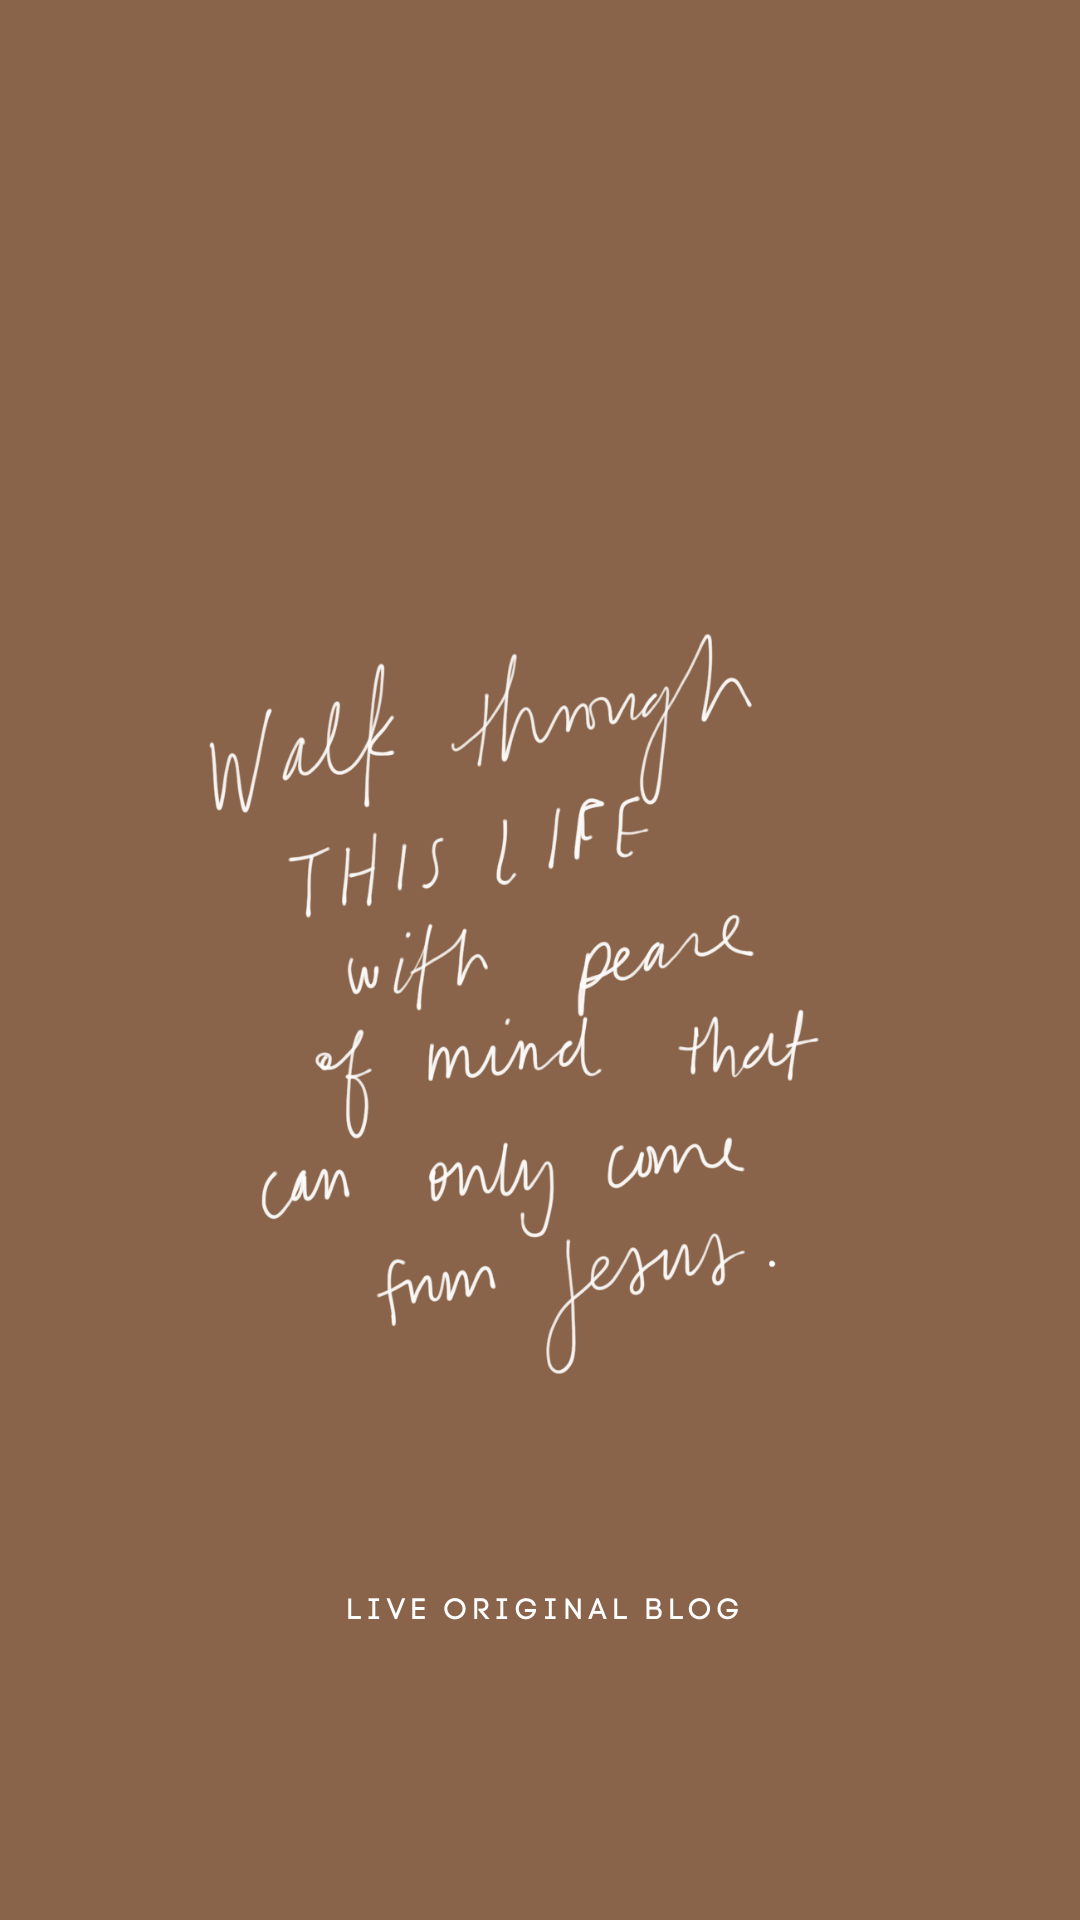 Walk through
THIS LIFE
with peace
of mind that
can only come
from Jesus.
LIVE ORIGINAL BLOG